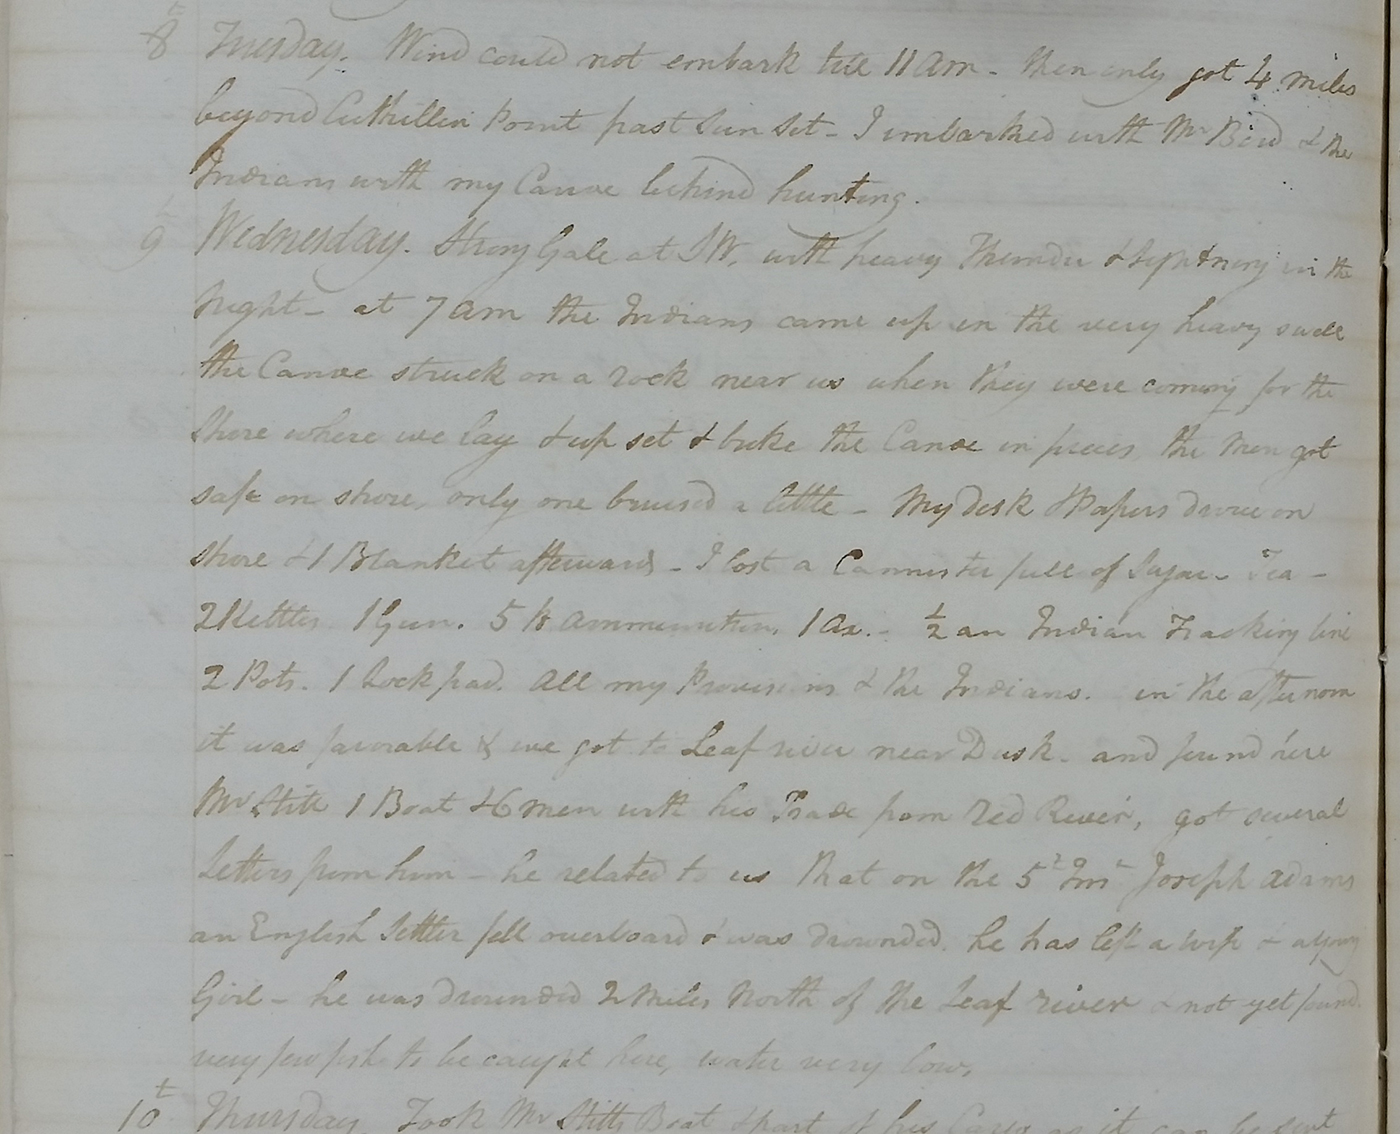 8th Tuesday. Wind could not embark till 11 am - then only got 4 miles
beyond Point past Sun Set - I imbarked with Mr Bird & the
Indians with my Canoe behind hunting.
9th Wednesday. Strong Gale at SW. with heavy Thunder & Lightning in the
Night - at 7 am the Indians came up in the very heavy swell
the Canoe struck on a rock near us when they were coming for the
Shore where we lay & up set & broke the Canoe in pieces, the Men got
safe on shore, only one bruised a little - My Desk & Papers drove on
shore & 1 Blanket afterwards - I lost a Cannister full of Sugar - Tea -
2 Kettles 1 Gun. 5 lb ammunition, 1 Ax. - ½ an Indian Tracking line
2 Pots. 1 Lock pad. All my Provisions & the Indians. in the afternoon
it was favorable & we got to Leaf river near Dusk. and found here
Mr Stitt 1 Boat & 6 men with his Trade from Red River, got several
Letters from him - he related to us that on the 5 Joseph Adams
an English Settler fell overboard & was drownded. he has left a wife & a young
Girl - he was drownded 2 Miles North of the Leaf river & not yet found.
very few fish to be caught here, water very low.
10th Thursday. Took Mr Stitts Boat & part of his Cargo as it can be sent